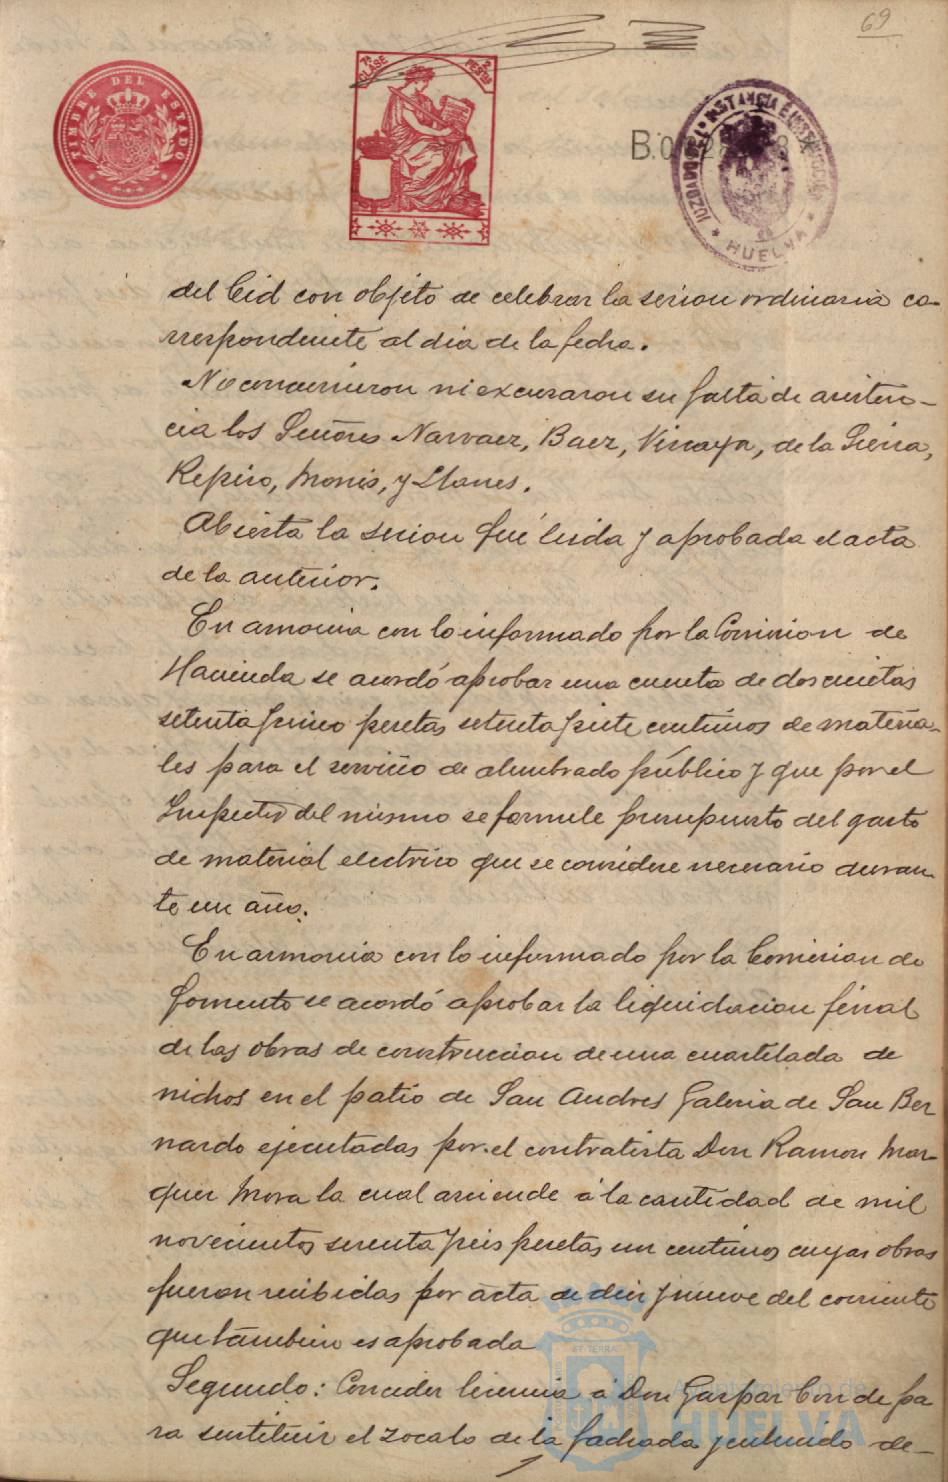 69
TIMBRE DEL ESTADO
7ª CLASE 2 PESETAS
JUZGADO DE 1ª INSTANCIA E INSTRUCCION
* HUELVA *
del Cid con objeto de celebrar la sesion ordinaria co-
rrespondiente al dia de la fecha.
No concurrieron ni excusaron su falta de asisten-
cia los Señores Narvaez, Baez, Vizcaya, de la Sierra,
Repiso, Monis, y Llanes.
Abierta la sesion fué leida y aprobada el acta
de la anterior.
En armonia con lo informado por la Comision de
Hacienda se acordó aprobar una cuenta de doscientas
setenta y cinco pesetas setenta y siete centimos de materia-
les para el servicio de alumbrado público y que por el
Inspector del mismo se formule presupuesto del gasto
de material electrico que se considere necesario duran-
te un año.
En armonia con lo informado por la Comision de
Fomento se acordó aprobar la liquidacion final
de las obras de construccion de una cuartelada de
nichos en el patio de San Andres Galeria de San Ber
nardo ejecutadas por el contratista Don Ramon Mar-
quez Mora la cual asciende á la cantidad de mil
novecientos sesenta y seis pesetas un centimos cuyas obras
fueron recibidas por acta de diez y nueve del corriente
que tambien es aprobada
Segundo: Conceder licencia á Don Gaspar Conde pa
ra sustituir el zocalo de la fachada y enlucido de-
Ayuntamiento de
HUELVA